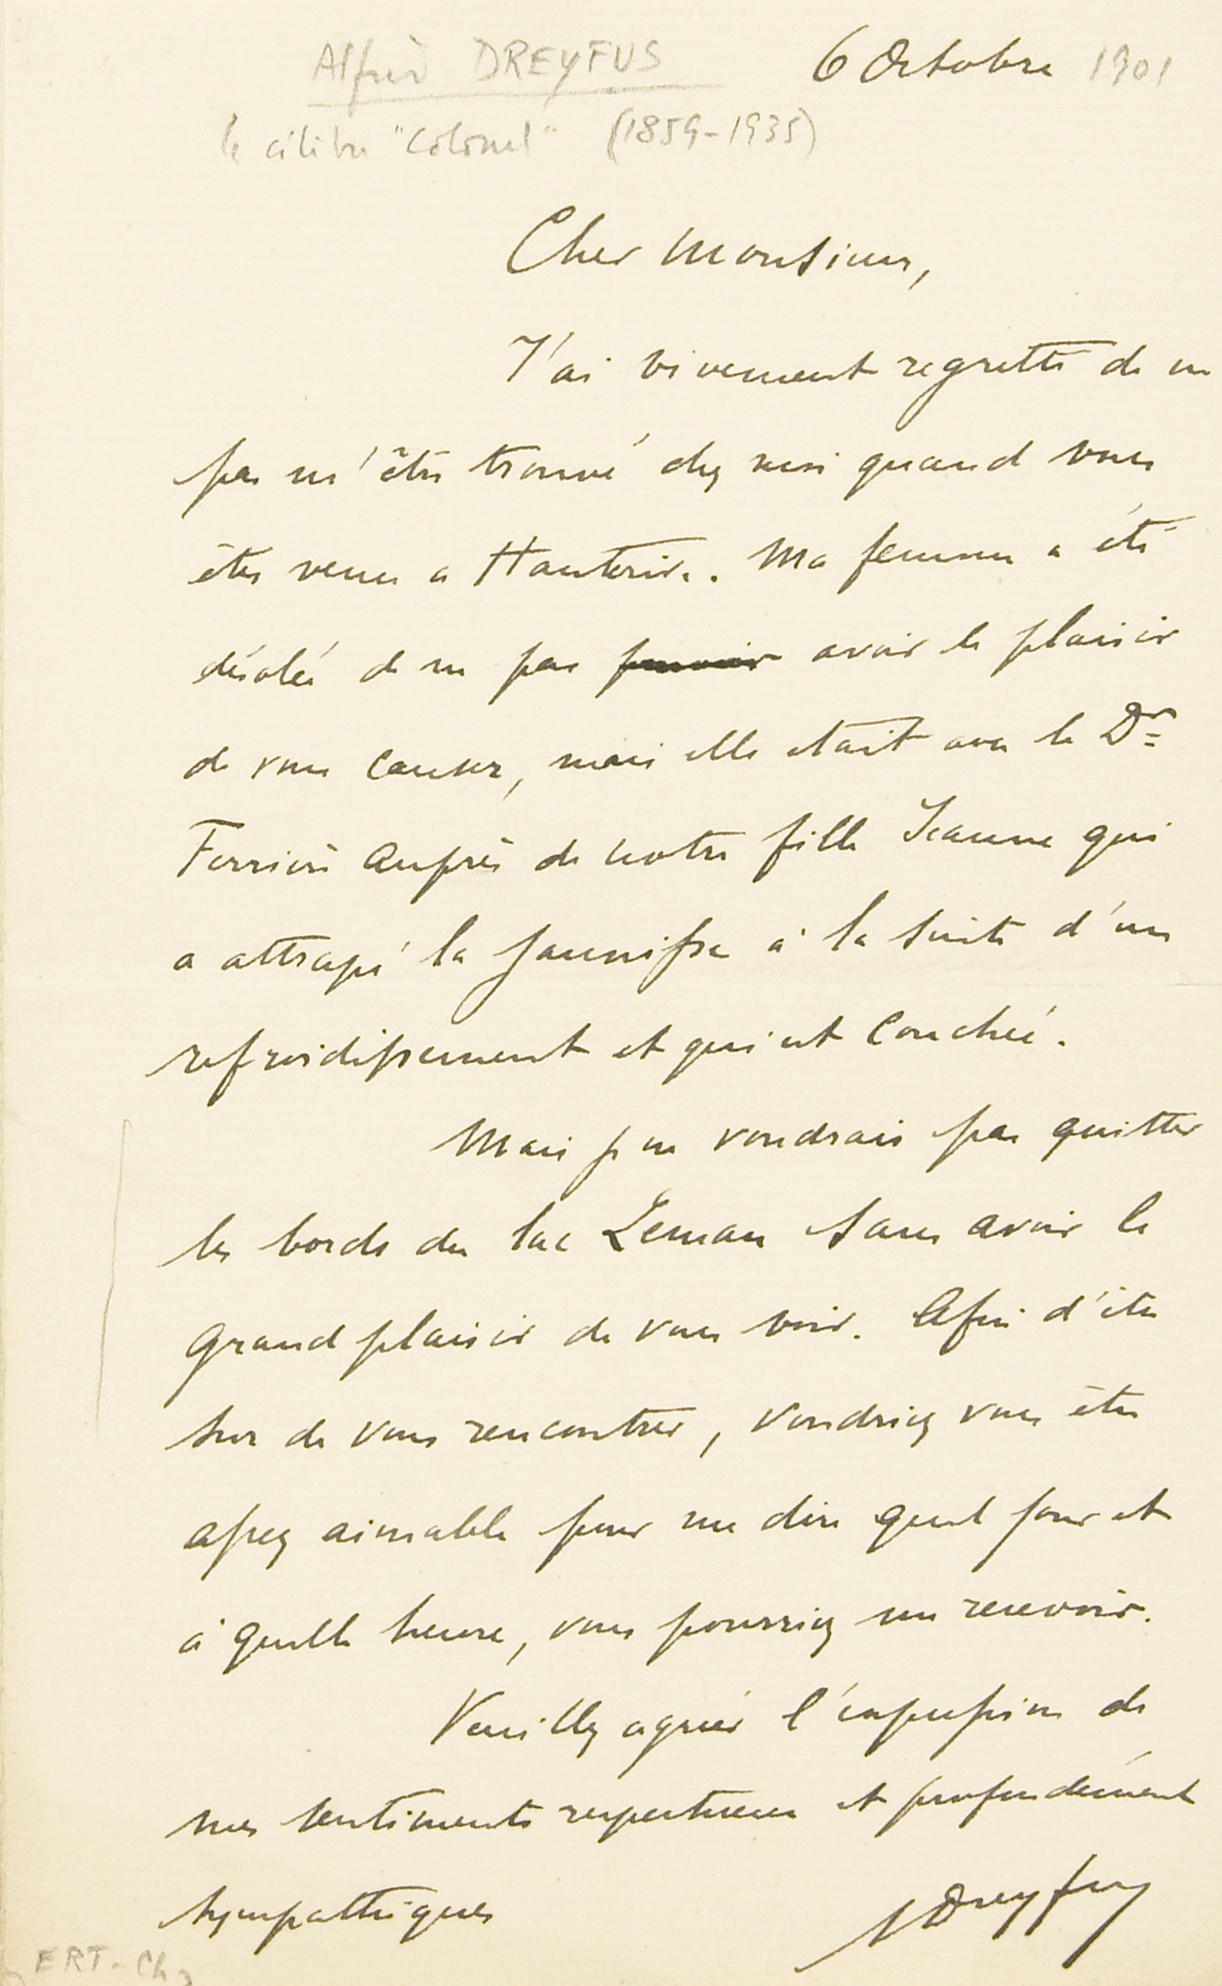 Alfred DREYFUS
6 Octobre 1901
le célèbre "Colonel" (1859-1935)
Cher Monsieur,
J'ai vivement regretté de ne
pas m'être trouvé chez moi quand vous
êtes venu a Hauterive. Ma femme a été
désolée de ne pas pouvoir avoir le plaisir
de vous causer, mais elle etait avec le Dr
Ferrière auprès de notre fille Jeanne qui
a attrapé la jaunisse à la suite d'un
refroidissement et qui est couchée.
Mais je ne voudrais pas quitter
les bords du lac Leman sans avoir le
grand plaisir de vous voir. Afin d'être
sur de vous rencontrer, voudriez vous être
assez aimable pour me dire quel jour et
à quelle heure, vous pourriez me recevoir.
Veuillez agréer l'expression de
mes sentiments respectueux et profondément
sympathiques
A Dreyfus
ERT. Ch